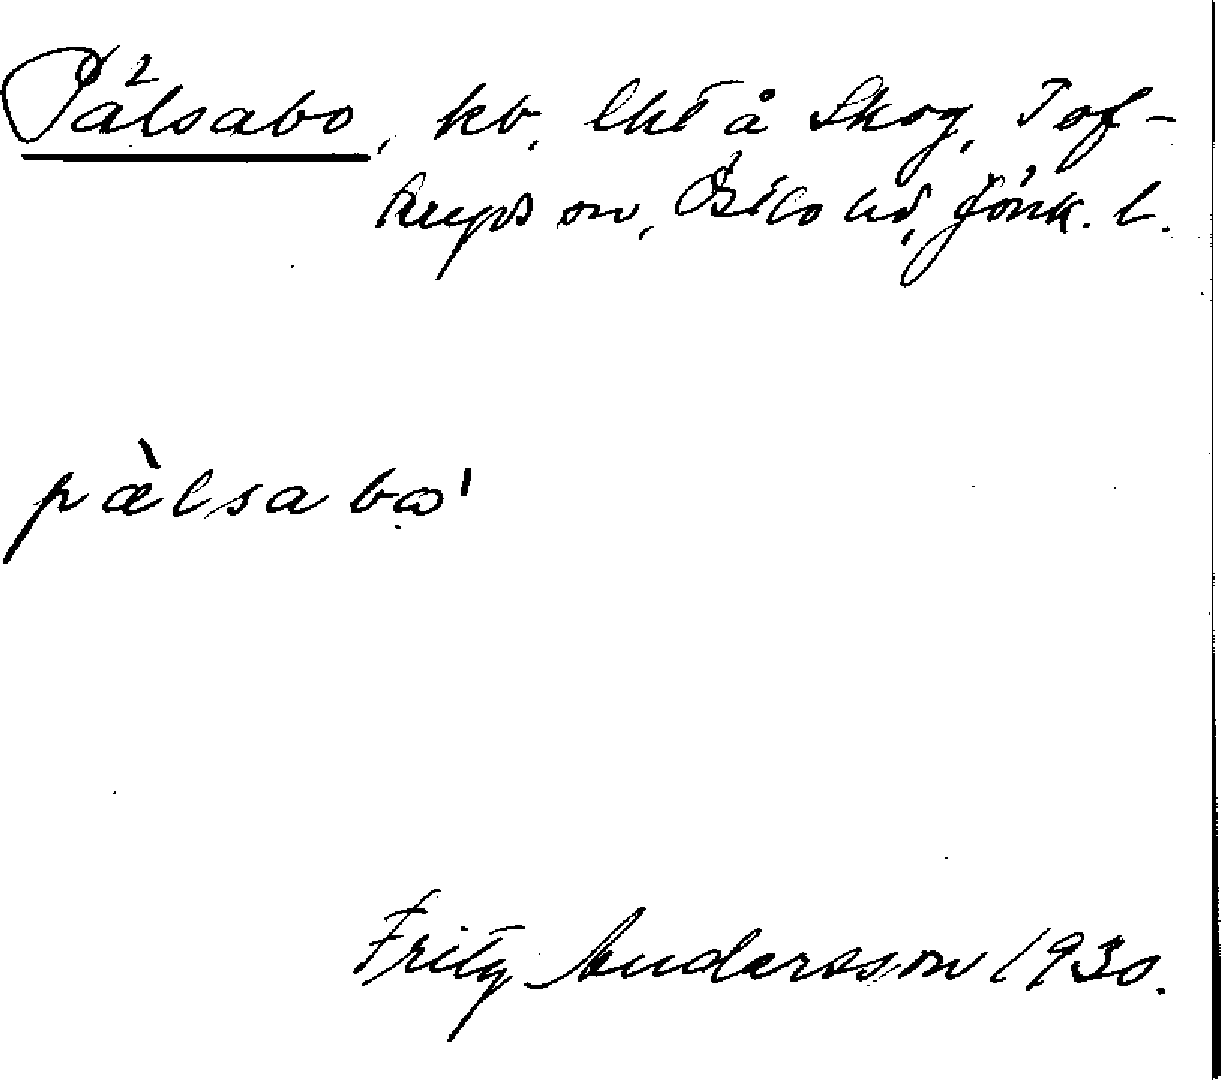 Pålsabo, kv. lht å Skog, Tof-
teryds sn, Östbo hd, Jönk. l.
pàlsabo'
Fritz Andersson 1930.